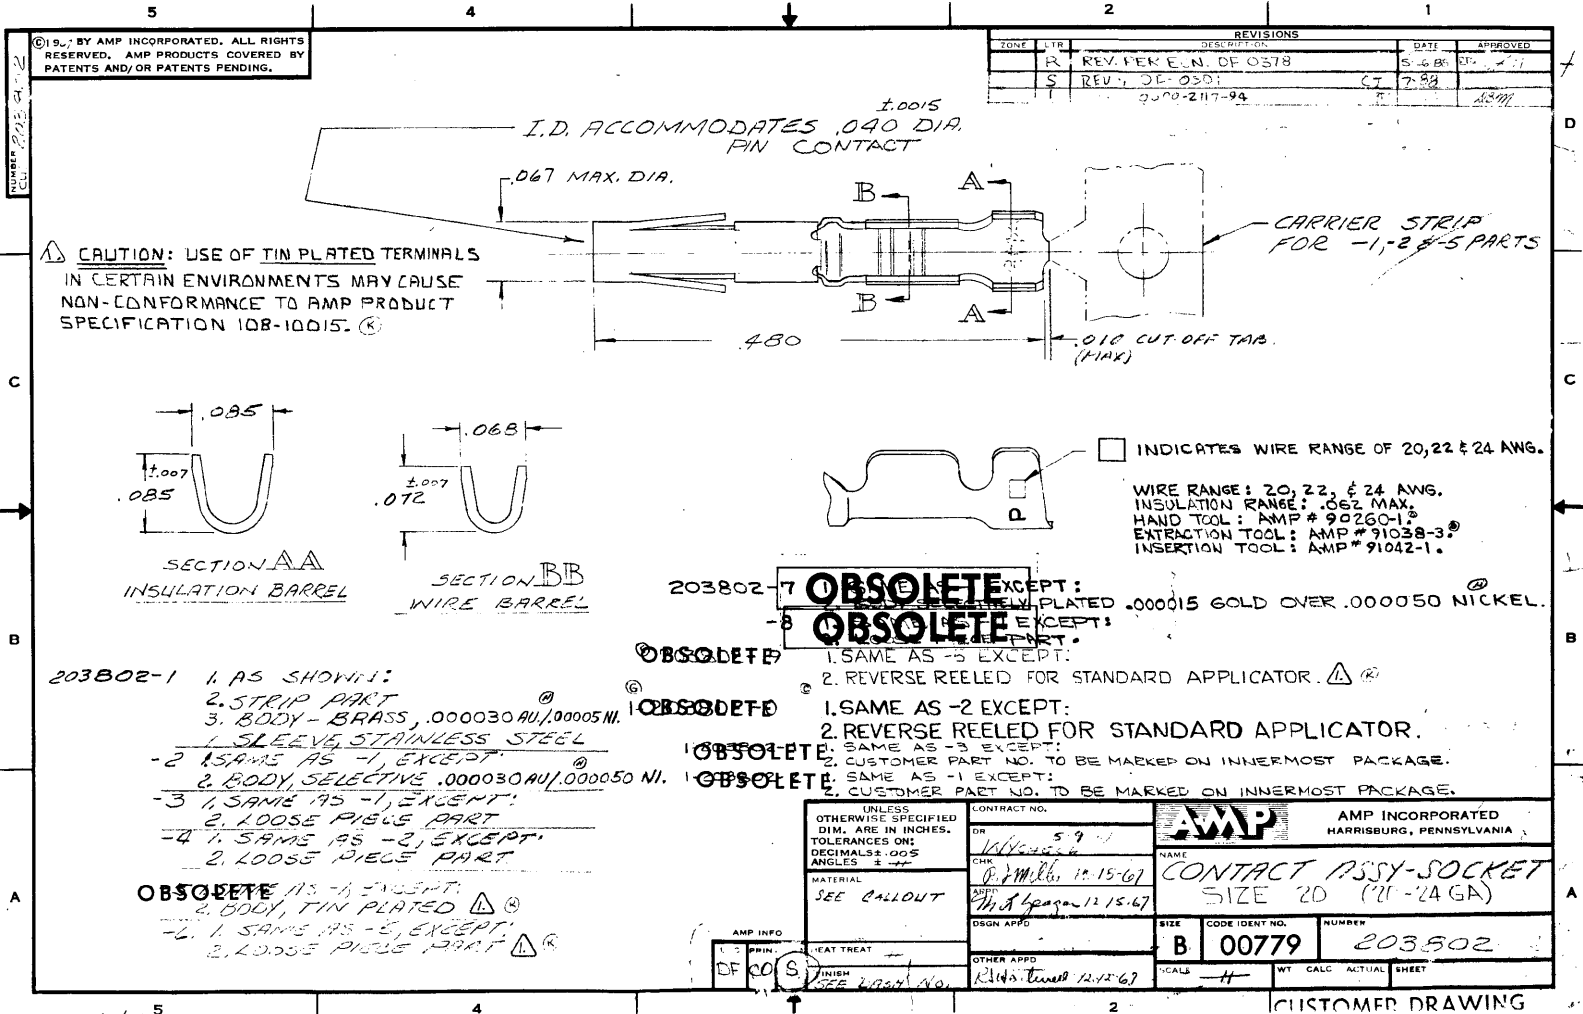 5
4
2
1
©19 BY AMP INCORPORATED. ALL RIGHTS
RESERVED. AMP PRODUCTS COVERED BY
PATENTS AND/OR PATENTS PENDING.
NUMBER
REVISIONS
ZONE LTR DESCRIPTION DATE APPROVED
R REV. PER ECN. DF 0378
S REV
T -2117-94
D
±.0015
I.D. ACCOMMODATES .040 DIA.
PIN CONTACT
.067 MAX. DIA.
B A
CARRIER STRIP
FOR -1,-2 & -5 PARTS
B A
.480
.010 CUT-OFF TAB.
(MAX)
⚠ CAUTION: USE OF TIN PLATED TERMINALS
IN CERTAIN ENVIRONMENTS MAY CAUSE
NON-CONFORMANCE TO AMP PRODUCT
SPECIFICATION 108-10015. Ⓚ
C
C
.085
±.007
.085
SECTION AA
INSULATION BARREL
.068
±.007
.072
SECTION BB
WIRE BARREL
P
INDICATES WIRE RANGE OF 20,22 & 24 AWG.
WIRE RANGE: 20, 22, & 24 AWG.
INSULATION RANGE: .062 MAX.
HAND TOOL: AMP # 90260-1.
EXTRACTION TOOL: AMP # 91038-3.
INSERTION TOOL: AMP # 91042-1.
B
B
203802-7 OBSOLETE EXCEPT:
PLATED .000015 GOLD OVER .000050 NICKEL.
-8 OBSOLETE EXCEPT:
PART.
OBSOLETE 1. SAME AS -5 EXCEPT:
2. REVERSE REELED FOR STANDARD APPLICATOR. ⚠ Ⓚ
OBSOLETE 1. SAME AS -2 EXCEPT:
2. REVERSE REELED FOR STANDARD APPLICATOR.
OBSOLETE 1. SAME AS -3 EXCEPT:
2. CUSTOMER PART NO. TO BE MARKED ON INNERMOST PACKAGE.
OBSOLETE 1. SAME AS -1 EXCEPT:
2. CUSTOMER PART NO. TO BE MARKED ON INNERMOST PACKAGE.
203802-1 1. AS SHOWN:
2. STRIP PART
3. BODY - BRASS, .000030 AU/.00005 NI.
SLEEVE, STAINLESS STEEL
-2 1. SAME AS -1, EXCEPT:
2. BODY, SELECTIVE .000030 AU/.000050 NI.
-3 1. SAME AS -1, EXCEPT:
2. LOOSE PIECE PART
-4 1. SAME AS -2, EXCEPT:
2. LOOSE PIECE PART
OBSOLETE AS -1, EXCEPT:
2. BODY, TIN PLATED ⚠ Ⓚ
1. SAME AS -5, EXCEPT:
2. LOOSE PIECE PART ⚠ Ⓚ
A
A
UNLESS
OTHERWISE SPECIFIED
DIM. ARE IN INCHES.
TOLERANCES ON:
DECIMALS ± .005
ANGLES ±
MATERIAL
SEE CALLOUT
HEAT TREAT
FINISH
SEE DASH NO.
CONTRACT NO.
DR
CHK
12-15-67
APPD
12 15-67
DSGN APPD
OTHER APPD
12-12-67
AMP
AMP INCORPORATED
HARRISBURG, PENNSYLVANIA
NAME
CONTACT ASSY-SOCKET
SIZE 20 (20-24 GA)
SIZE CODE IDENT NO. NUMBER
B 00779 203802
SCALE WT CALC ACTUAL SHEET
AMP INFO
PRIN.
DF CO S
5
4
2
CUSTOMER DRAWING